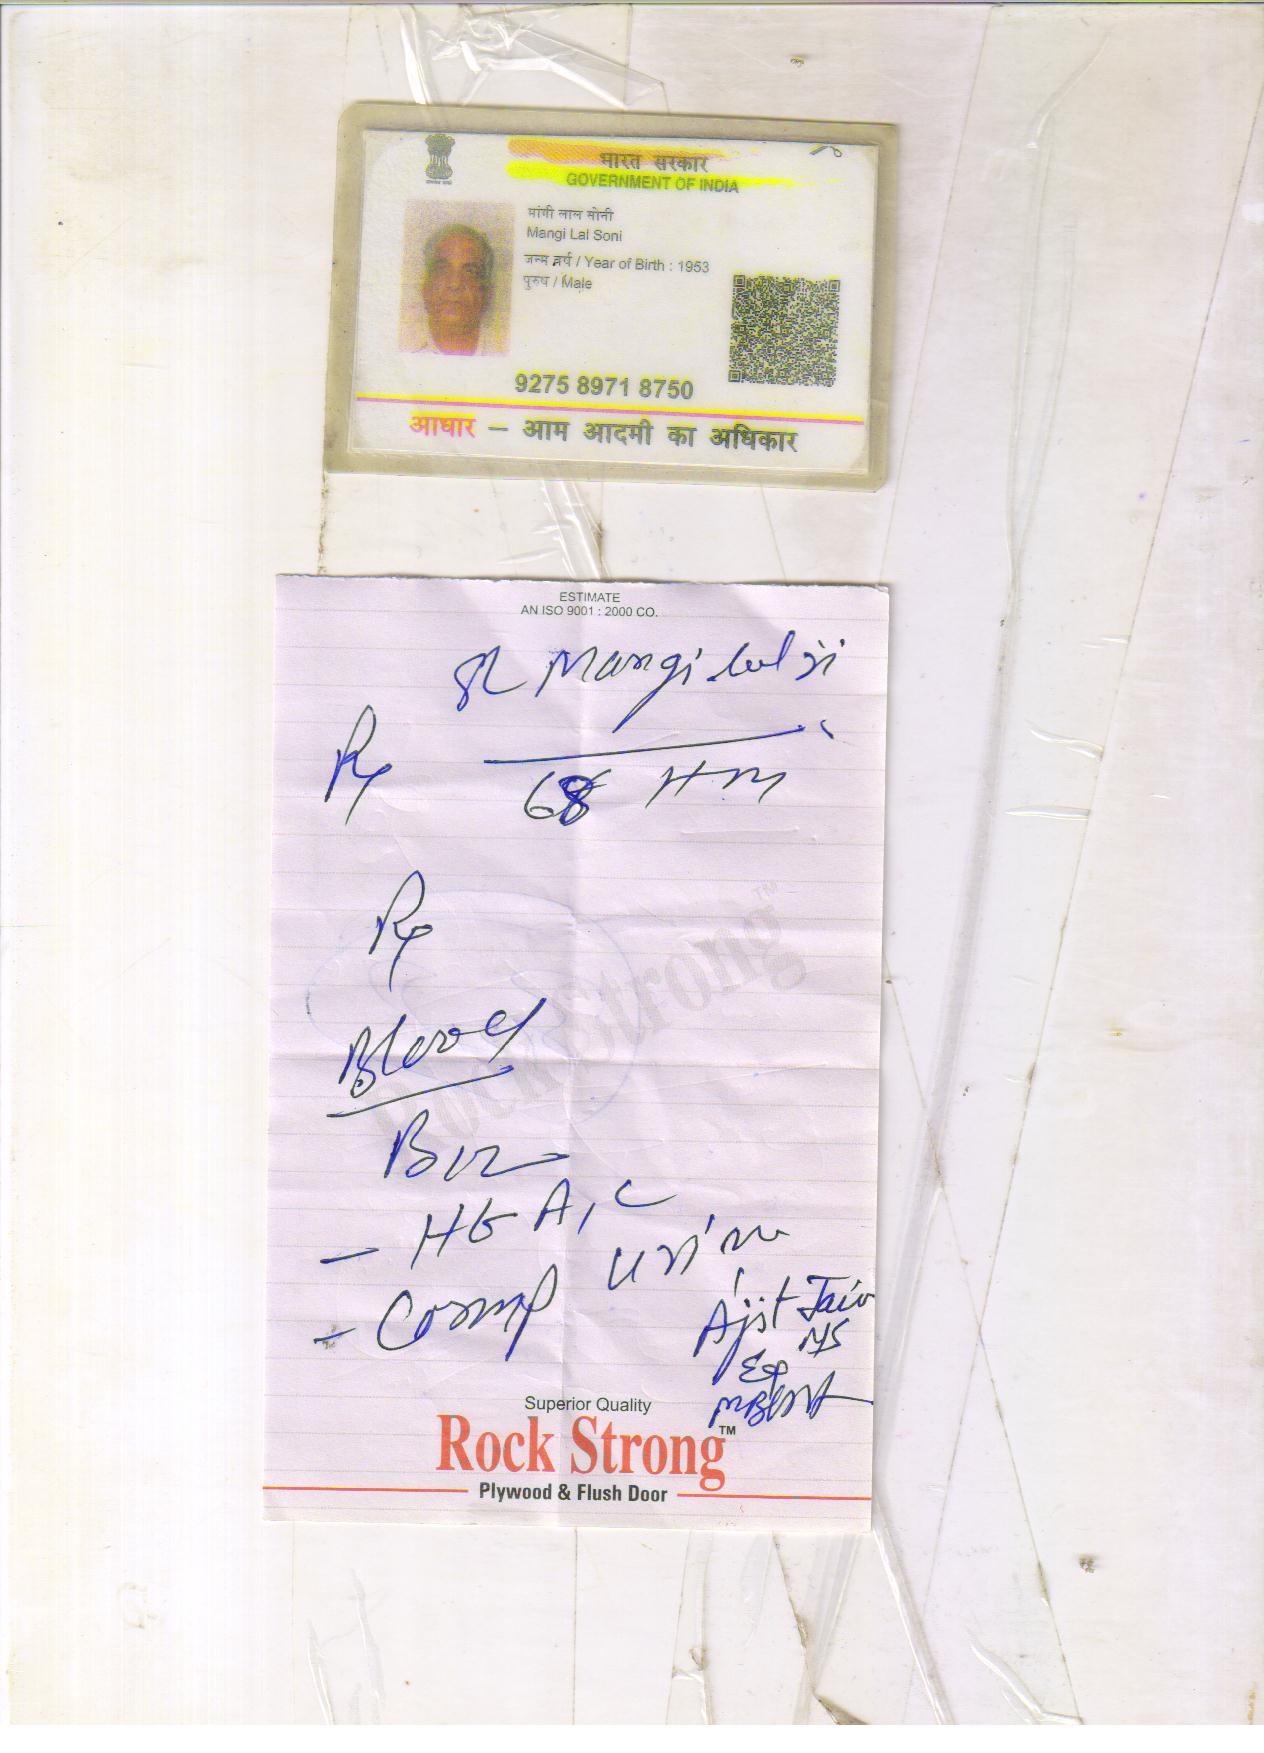 भारत सरकार
GOVERNMENT OF INDIA
मांगी लाल सोनी
Mangi Lal Soni
जन्म वर्ष / Year of Birth : 1953
पुरुष / Male
9275 8971 8750
आधार – आम आदमी का अधिकार
ESTIMATE
AN ISO 9001 : 2000 CO.
Mangi lal ji
Rx
68
Rx
Rock Strong™
Blood
B12
- HG A1C
- Comp urine
Ajit Jain
Superior Quality
Rock Strong™
Plywood & Flush Door